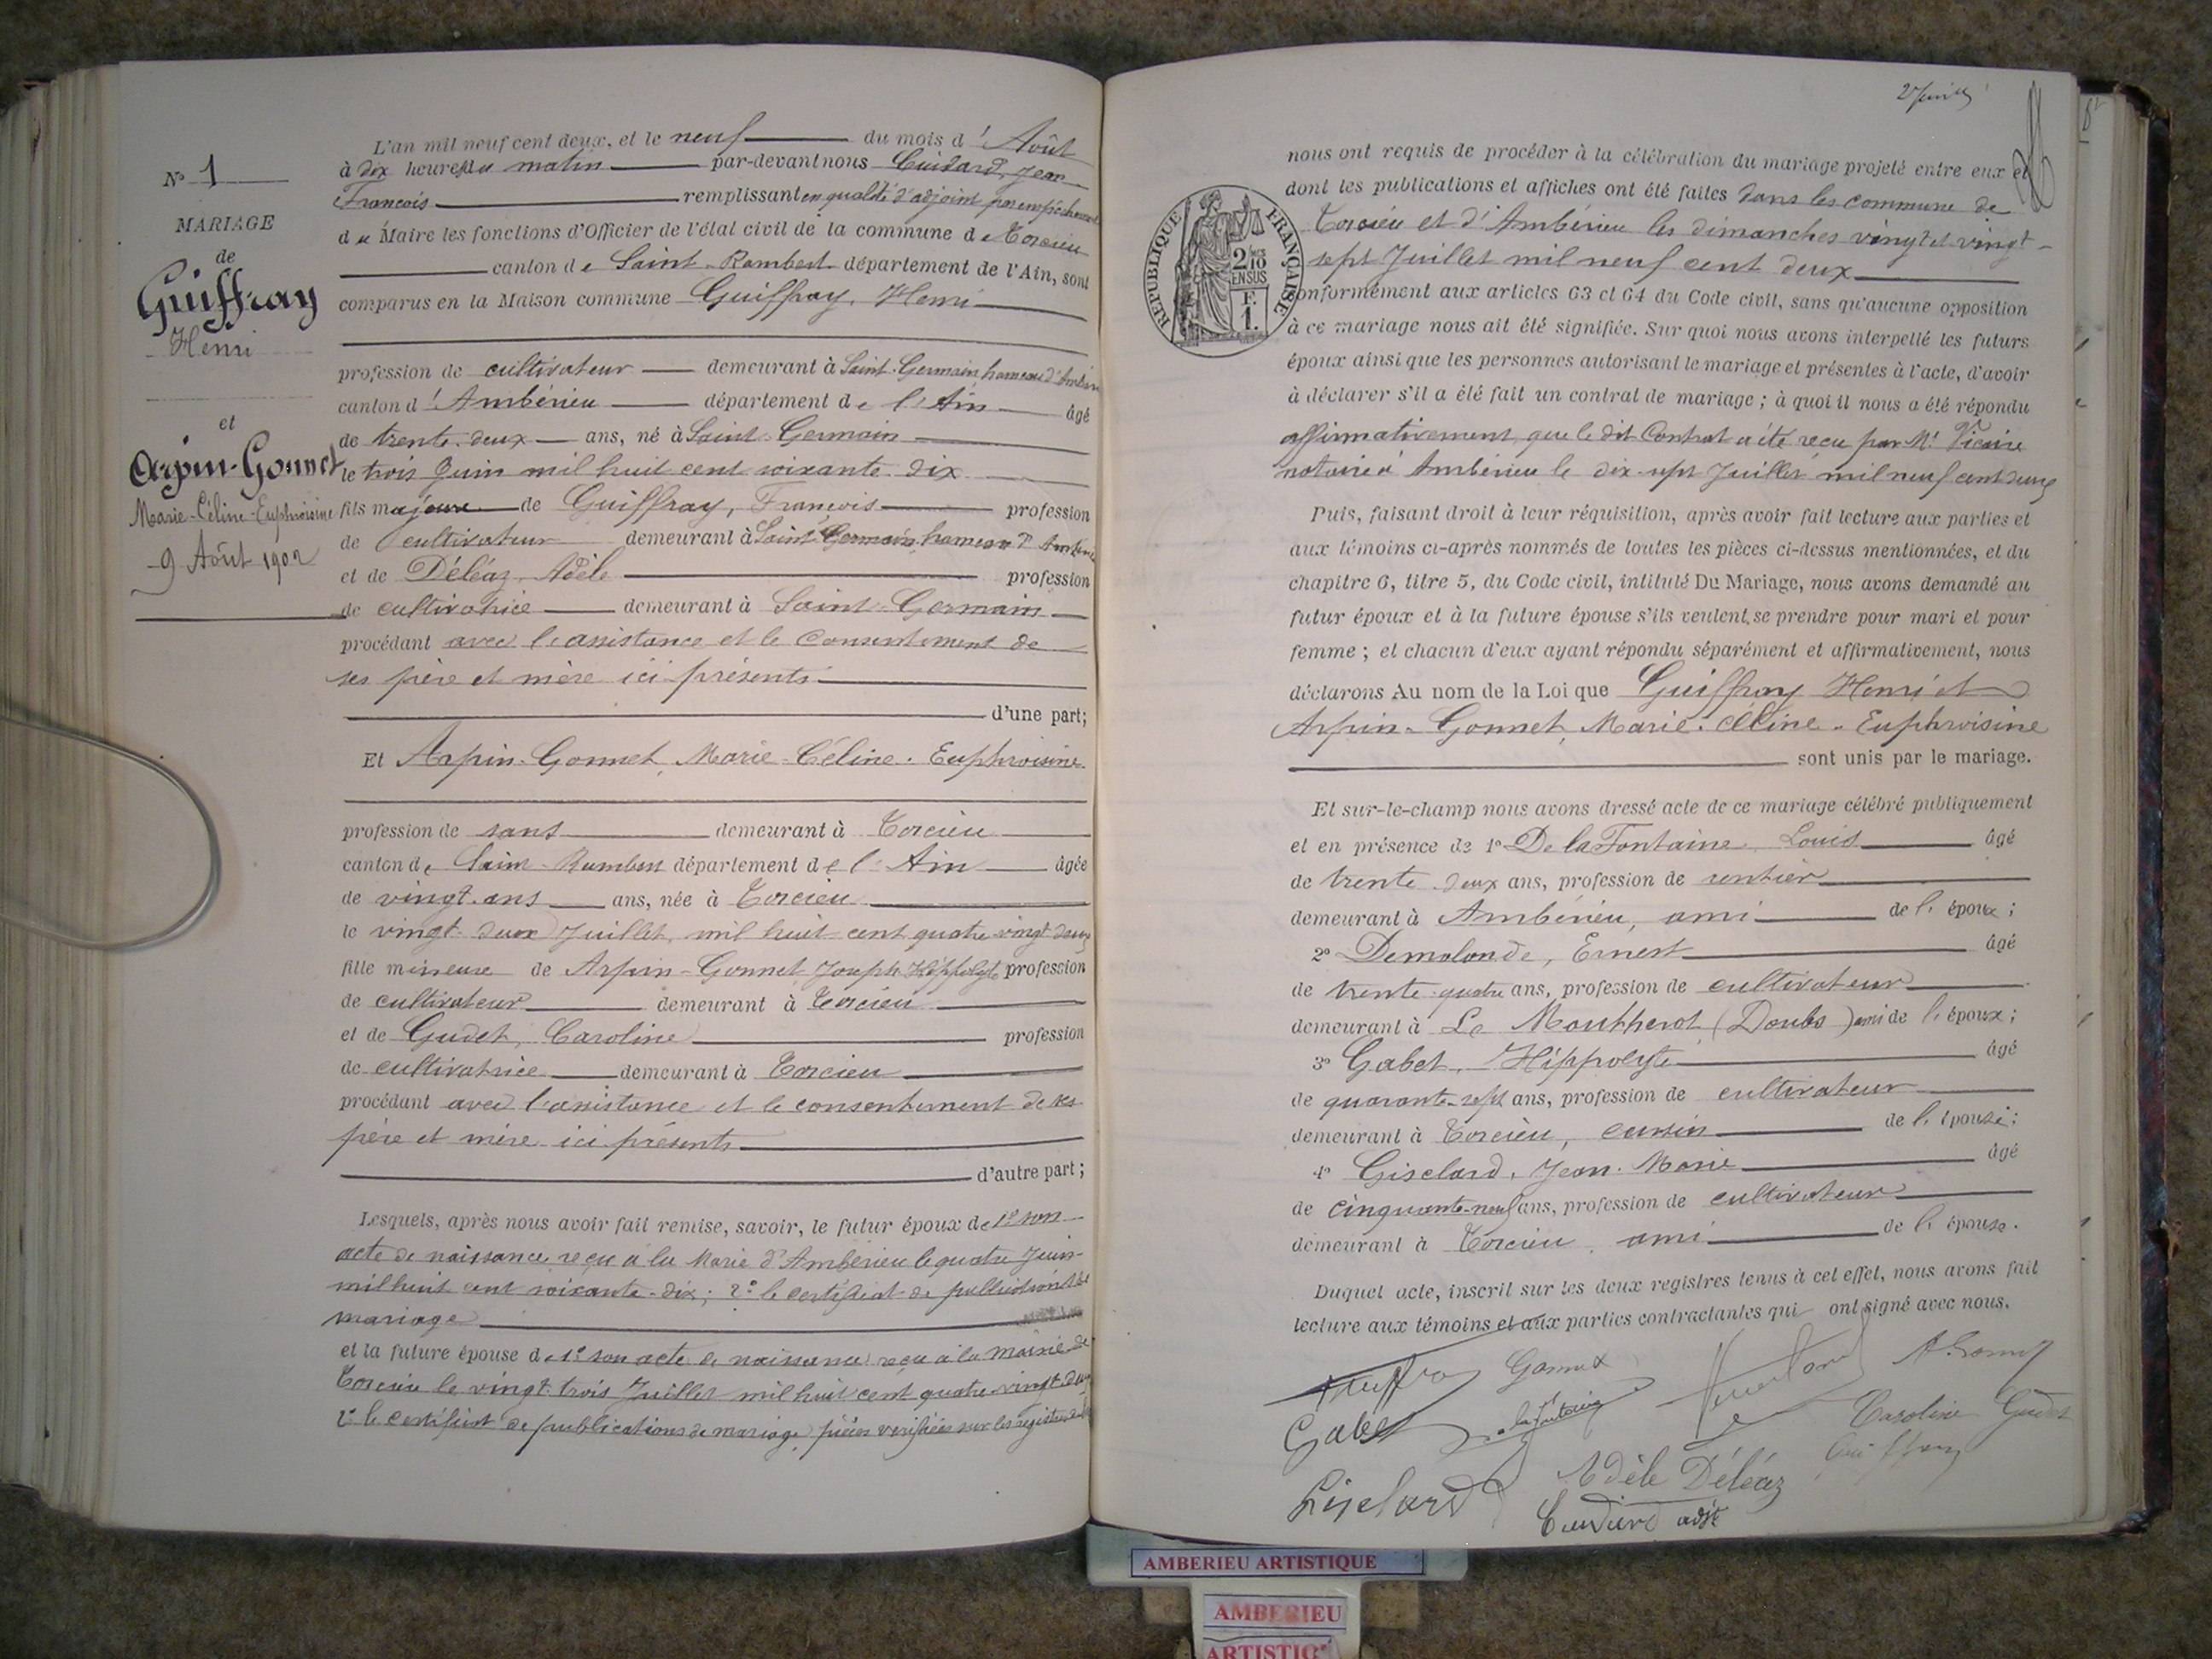 N° 1
MARIAGE
de
Guiffray
Henri
et
Arpin-Gonnet
Marie-Céline-Euphroisine
9 Août 1902
L'an mil neuf cent deux, et le neuf du mois d'Août
à dix heures du matin par-devant nous Jean
François remplissant en qualité d'adjoint par empêchement
du Maire les fonctions d'Officier de l'état civil de la commune de Torcieu
canton de Saint-Rambert département de l'Ain, sont
comparus en la Maison commune Guiffray, Henri
profession de cultivateur demeurant à Saint-Germain hameau d'Ambérieu
canton d'Ambérieu département de l'Ain âgé
de trente-deux ans, né à Saint-Germain
le trois Juin mil huit cent soixante-dix
fils majeur de Guiffray, François profession
de cultivateur demeurant à Saint-Germain, hameau d'Ambérieu
et de Déléaz, Adèle profession
de cultivatrice demeurant à Saint-Germain
procédant avec l'assistance et le consentement de
ses père et mère ici présents
d'une part;
Et Arpin-Gonnet, Marie-Céline-Euphroisine
profession de sans demeurant à Torcieu
canton de Saint-Rambert département de l'Ain âgée
de vingt ans ans, née à Torcieu
le vingt-deux Juillet, mil huit cent quatre-vingt-deux
fille mineure de Arpin-Gonnet Joseph Hippolyte profession
de cultivateur demeurant à Torcieu
et de Gudet, Caroline profession
de cultivatrice demeurant à Torcieu
procédant avec l'assistance et le consentement de ses
père et mère ici présents
d'autre part;
Lesquels, après nous avoir fait remise, savoir, le futur époux de 1° son
acte de naissance reçu à la Mairie d'Ambérieu le quatre Juin
mil huit cent soixante-dix; 2° le certificat de publications de
mariage
et la future épouse de 1° son acte de naissance reçu à la mairie de
Torcieu le vingt-trois Juillet mil huit cent quatre-vingt-deux
2° le certificat de publications de mariage, pièces vérifiées sur les registres
nous ont requis de procéder à la célébration du mariage projeté entre eux et
dont les publications et affiches ont été faites dans les commune de
Torcieu et d'Ambérieu les dimanches vingt et vingt-
sept Juillet mil neuf cent deux
conformément aux articles 63 et 64 du Code civil, sans qu'aucune opposition
à ce mariage nous ait été signifiée. Sur quoi nous avons interpellé les futurs
époux ainsi que les personnes autorisant le mariage et présentes à l'acte, d'avoir
à déclarer s'il a été fait un contrat de mariage; à quoi il nous a été répondu
affirmativement, que le dit Contrat a été reçu par Mᵉ Vicaire
notaire à Ambérieu le dix-sept Juillet mil neuf cent deux
Puis, faisant droit à leur réquisition, après avoir fait lecture aux parties et
aux témoins ci-après nommés de toutes les pièces ci-dessus mentionnées, et du
chapitre 6, titre 5, du Code civil, intitulé Du Mariage, nous avons demandé au
futur époux et à la future épouse s'ils veulent se prendre pour mari et pour
femme; et chacun d'eux ayant répondu séparément et affirmativement, nous
déclarons Au nom de la Loi que Guiffray Henri et
Arpin-Gonnet, Marie-Céline-Euphroisine
sont unis par le mariage.
Et sur-le-champ nous avons dressé acte de ce mariage célébré publiquement
et en présence de 1° De la Fontaine Louis âgé
de trente-deux ans, profession de rentier
demeurant à Ambérieu, ami de l'époux;
2° Demolonde, Ernest âgé
de trente-quatre ans, profession de cultivateur
demeurant à Le Moutherot (Doubs) ami de l'époux;
3° Gabet, Hippolyte âgé
de quarante-sept ans, profession de cultivateur
demeurant à Torcieu, cousin de l'épouse;
4° Giselard, Jean-Marie âgé
de cinquante-neuf ans, profession de cultivateur
demeurant à Torcieu, ami de l'épouse.
Duquel acte, inscrit sur les deux registres tenus à cet effet, nous avons fait
lecture aux témoins et aux parties contractantes qui ont signé avec nous.
Gonnet
Gabet
Caroline Gudet
Guiffray
Giselard
Adèle Déléaz
adjt
RÉPUBLIQUE FRANÇAISE
2/10
EN SUS
F.
1.
AMBERIEU ARTISTIQUE
AMBERIEU
ARTISTIQ